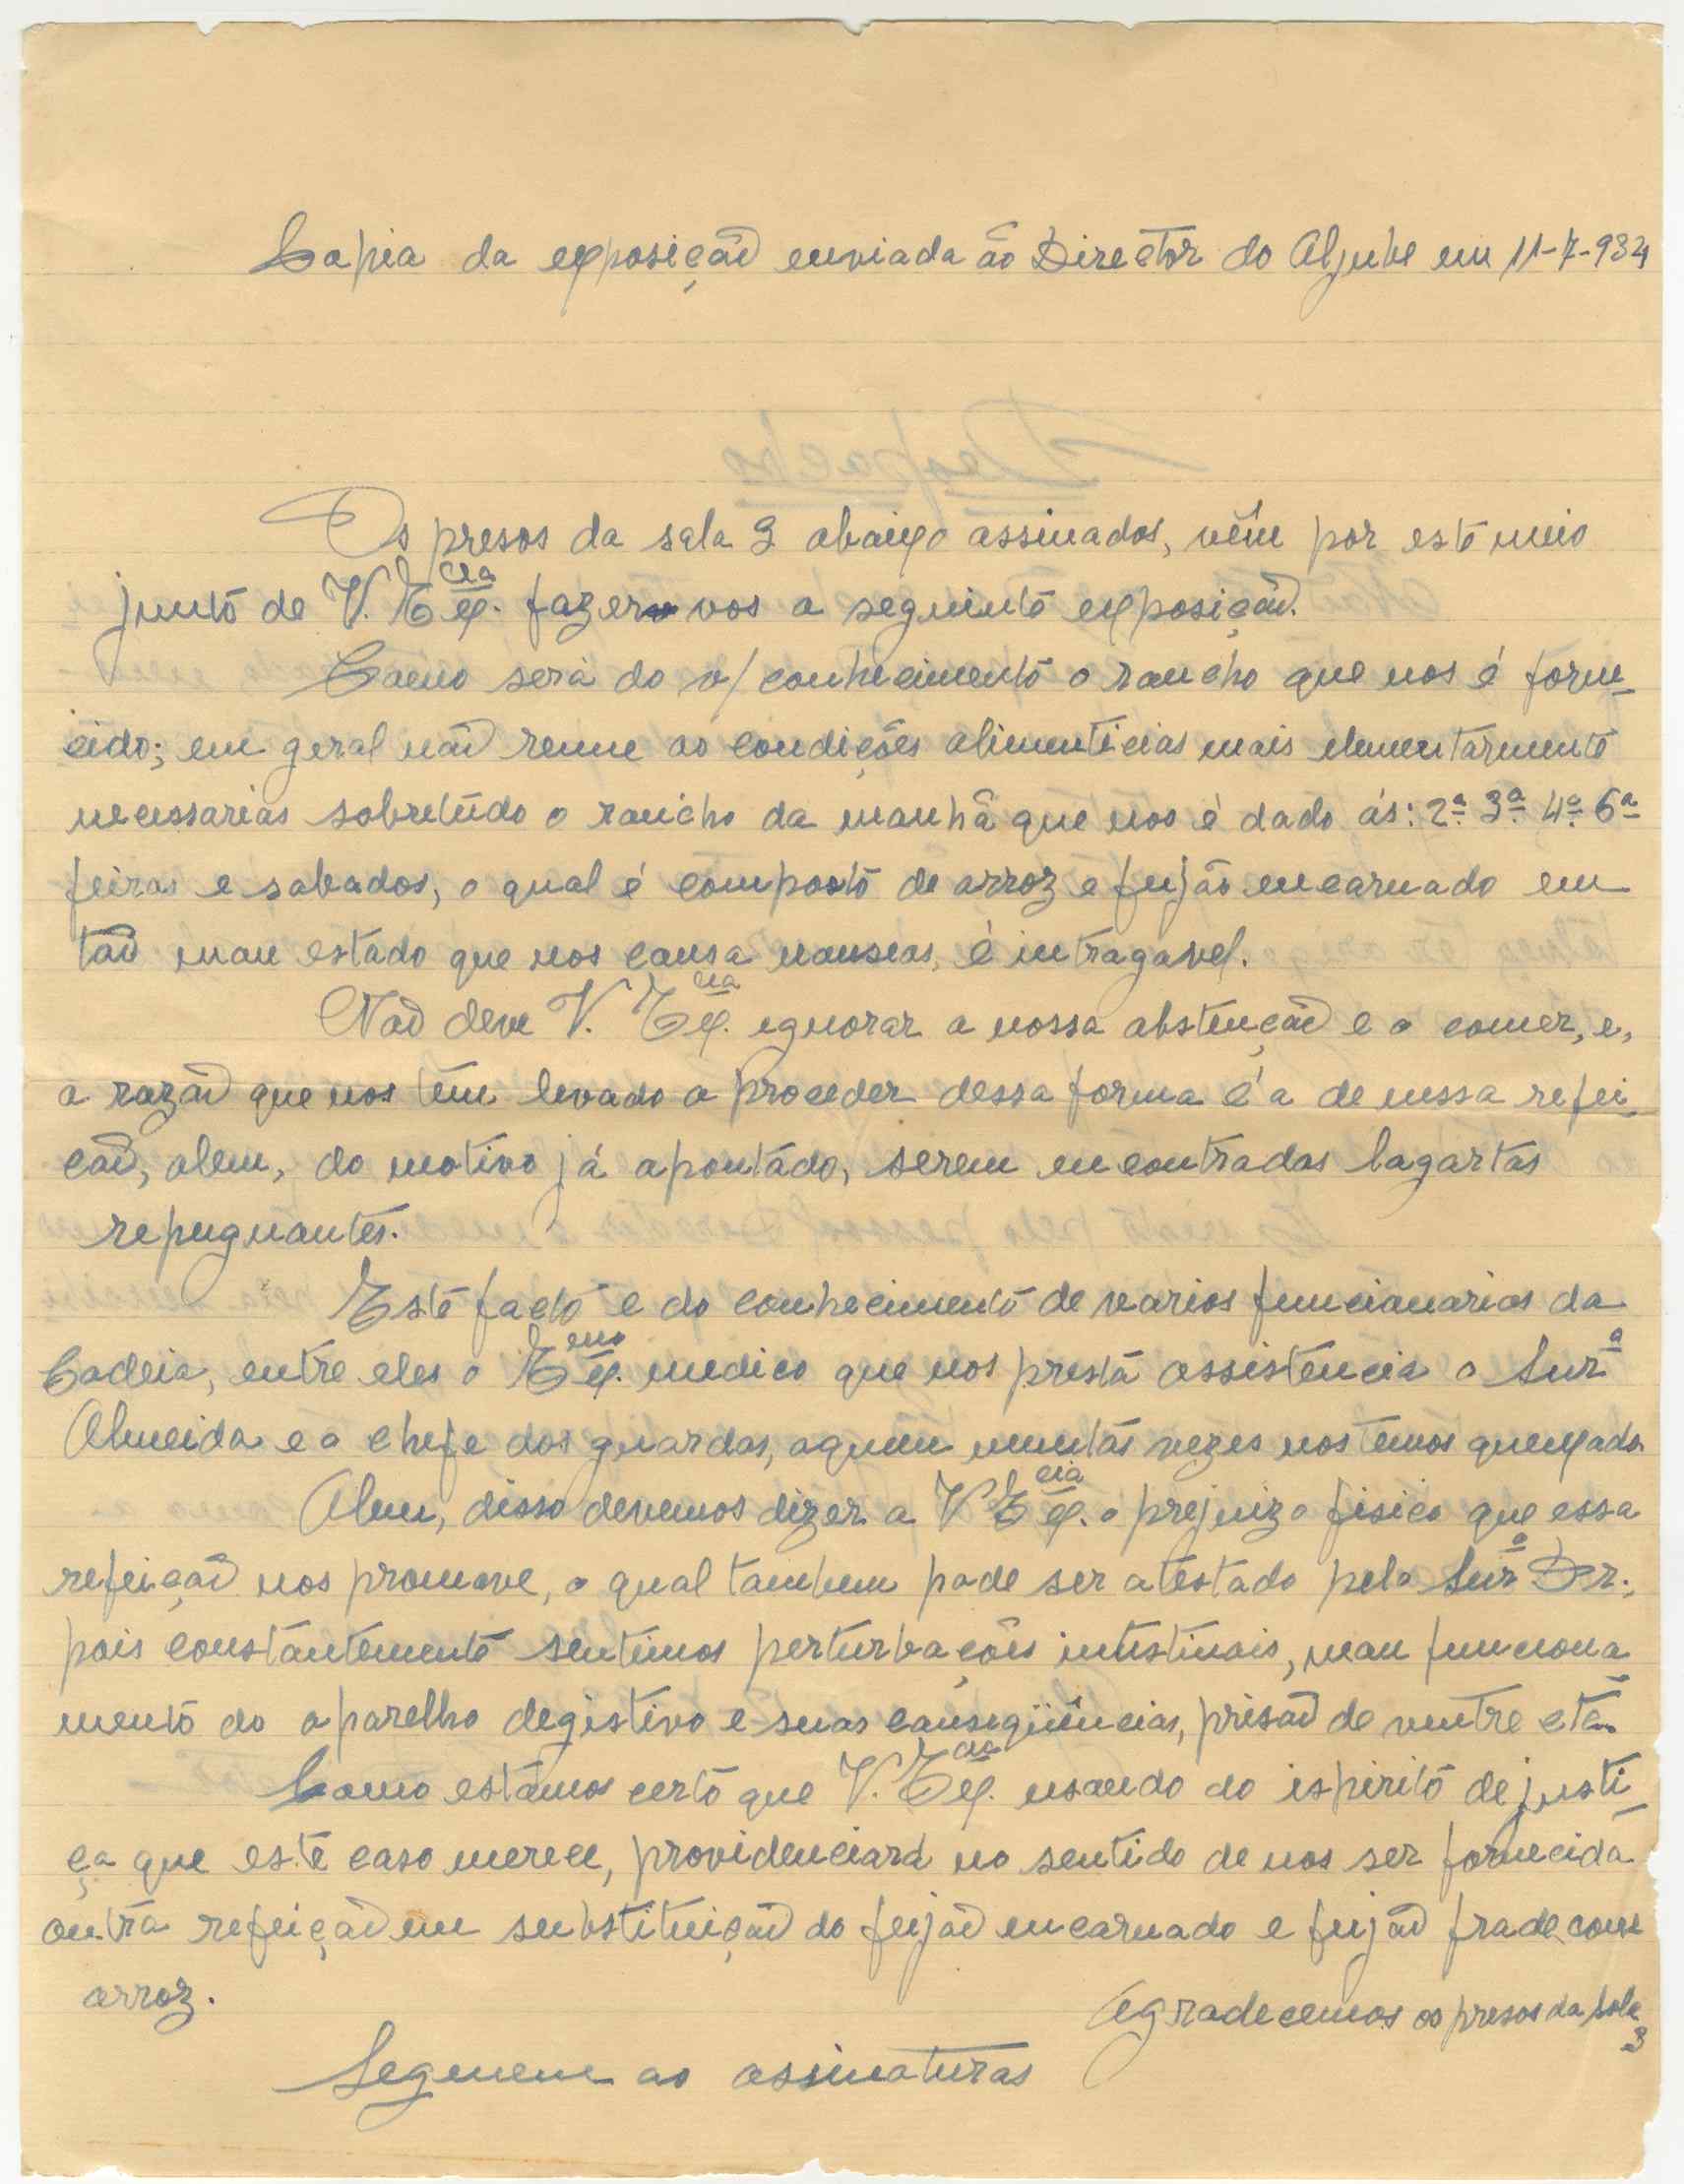 Copia da exposição enviada ao Director do Aljube em 11-7-934
Os presos da sala 3 abaixo assinados, vêm por este meio
junto de V. Ex.cia fazer vos a seguinte exposição.
Como será do v/ conhecimento o rancho que nos é forne_
cido; em geral não reune as condições alimenticias mais elementarmente
necessarias sobretudo o rancho da manhã que nos é dado ás: 2ª 3ª 4ª 6ª
feiras e sabados, o qual é composto de arroz e feijão encarnado em
tão mau estado que nos causa nauseas, é intragavel.
Não deve V. Ex.cia ignorar a nossa abstenção e o comer, e,
a razão que nos tem levado a proceder dessa forma é a de nessa refei_
ção, alem, do motivo já apontado, serem encontradas lagartas
repugnantes.
Este facto é do conhecimento de varios funcionarios da
Cadeia, entre eles o Ex.mo medico que nos presta assistencia o Snrº
Almeida e o chefe dos guardas, aquem muitas vezes nos temos queixado
Alem, disso devemos dizer a V Ex.cia o prejuizo fisico que essa
refeição nos promove, o qual tambem pode ser atestado pelo Snrº Dr.,
pois constantemente sentimos perturbações intestinais, mau funciona_
mento do aparelho degistivo e suas conseqüências, prisão de ventre etc.
Como estamos certo que V. Ex.cia usando do ispirito de justi_
ça que este caso merece, providenciará no sentido de nos ser fornecida
outra refeição em substituição do feijão encarnado e feijão frade com
arroz.
Agradecemos os presos da sala
3
Seguem as assinaturas